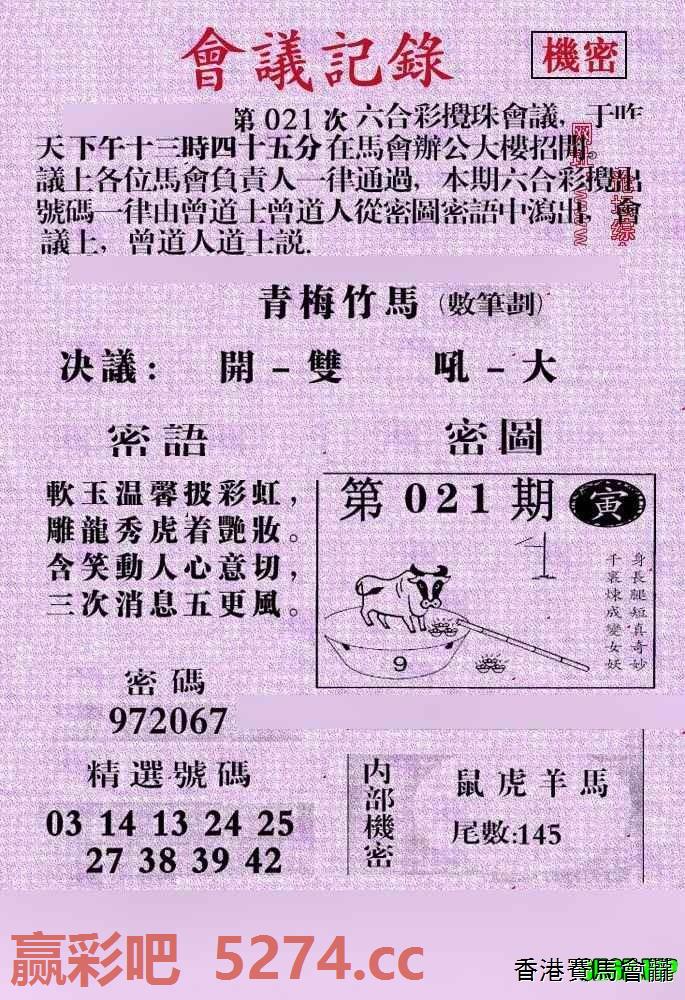 會議記錄
機密
第021次六合彩攪珠會議，于昨
天下午十三時四十五分在馬會辦公大樓招開。
議上各位馬會負責人一律通過，本期六合彩攪出
號碼一律由曾道士曾道人從密圖密語中瀉出，會
議上，曾道人道士説.
青梅竹馬（數筆劃）
决議： 開－雙 吼－大
密語
軟玉温馨披彩虹，
雕龍秀虎着艷妝。
含笑動人心意切，
三次消息五更風。
密圖
第021期
寅
身長腿短真奇妙
千哀煉成變女妖
9
密碼
972067
精選號碼
03 14 13 24 25
27 38 39 42
内部機密
鼠虎羊馬
尾數:145
赢彩吧 5274.cc
香港賽馬會